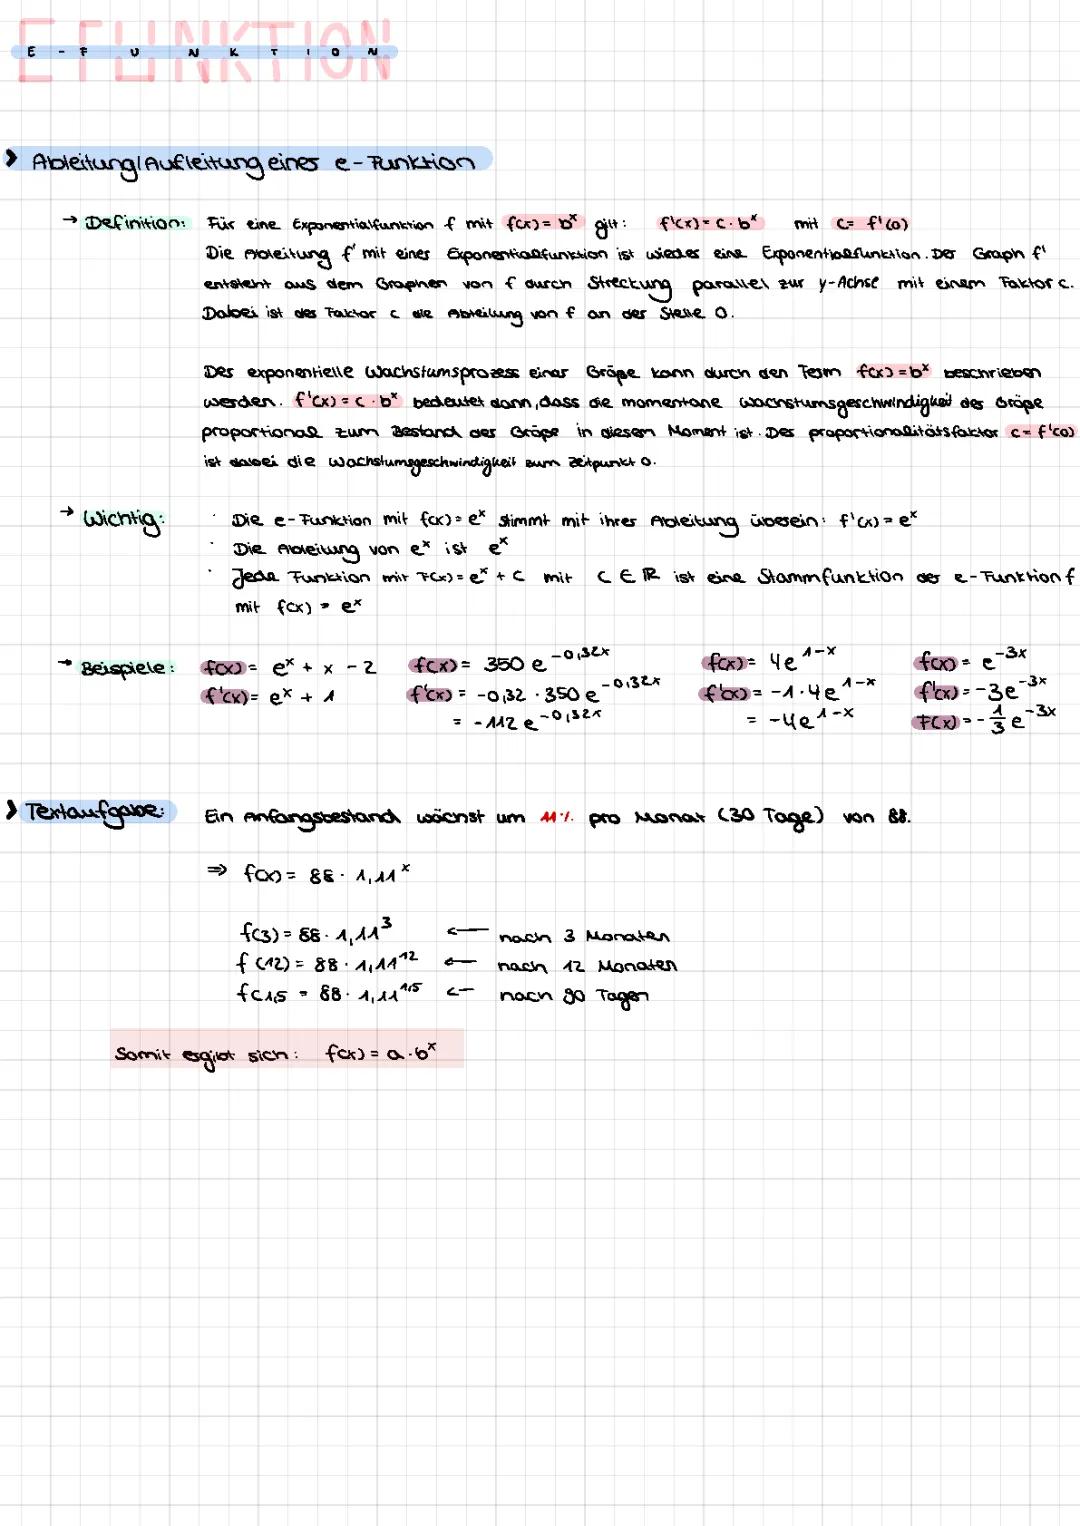 E FUNKTION
E - F U N K T I O N
Ableitung/Aufleitung einer e-Funktion
→ Definition: Für eine Exponentialfunktion f mit f(x) = b^x gilt: f'(x) = c · b^x mit c = f'(0)
Die Ableitung f' mit einer Exponentialfunktion ist wieder eine Exponentialfunktion. Der Graph f'
entsteht aus dem Graphen von f durch Streckung parallel zur y-Achse mit einem Faktor c.
Dabei ist der Faktor c die Ableitung von f an der Stelle 0.
Der exponentielle Wachstumsprozess einer Größe kann durch den Term f(x) = b^x beschrieben
werden. f'(x) = c · b^x bedeutet dann, dass die momentane Wachstumsgeschwindigkeit der Größe
proportional zum Bestand der Größe in diesem Moment ist. Der proportionalitätsfaktor c = f'(0)
ist dabei die Wachstumsgeschwindigkeit zum Zeitpunkt 0.
→ Wichtig: · Die e-Funktion mit f(x) = e^x stimmt mit ihrer Ableitung überein: f'(x) = e^x
· Die Ableitung von e^x ist e^x
· Jede Funktion mit F(x) = e^x + C mit C ∈ ℝ ist eine Stammfunktion der e-Funktion f
mit f(x) = e^x
→ Beispiele: f(x) = e^x + x - 2 f(x) = 350 e^-0,32x f(x) = 4e^1-x f(x) = e^-3x
f'(x) = e^x + 1 f'(x) = -0,32 · 350 e^-0,32x f'(x) = -1 · 4e^1-x f'(x) = -3e^-3x
= -112 e^-0,32x = -4e^1-x F(x) = -1/3 e^-3x
Textaufgabe: Ein Anfangsbestand wächst um 11% pro Monat (30 Tage) von 88.
⇒ f(x) = 88 · 1,11^x
f(3) = 88 · 1,11^3 ← nach 3 Monaten
f(12) = 88 · 1,11^12 ← nach 12 Monaten
f(1,5 = 88 · 1,11^1,5 ← nach 90 Tagen
Somit ergibt sich: f(x) = a · b^x